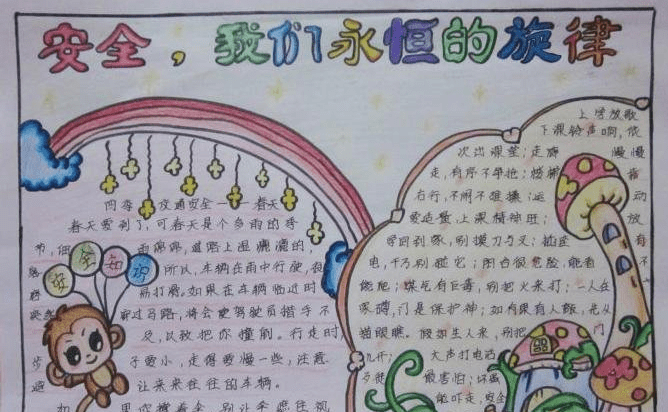 安全，我们永恒的旋律
四季交通安全——春天
春天爱到了，可春天是个多雨的季
节，细雨绵绵，道路上湿漉漉的，
所以，车辆在雨中行驶，很
易打滑。如果在车辆临近时
穿过马路，将会使驾驶员措手不
及，以致把你撞倒。行走时
子爱小，走得爱慢一些，注意
让来来往往的车辆。
安全知识
上学放歌
下课铃声响，依
次出课堂；走廊慢慢
走，有序不争抢；楼梯靠
右行，不闹不推搡；运动
爱适量，上课精神旺；放
学回到家，别摸刀与叉；插座有
电，千万别碰它；阳台很危险，不
能爬；煤气有巨毒，别把火来打；一人在
家時，门是保护神；如有果有人敲，先从
猫眼瞧。假如生人来，别把门
儿开；大声打电话
歹徒最害怕；坏蛋
能吓走，安全